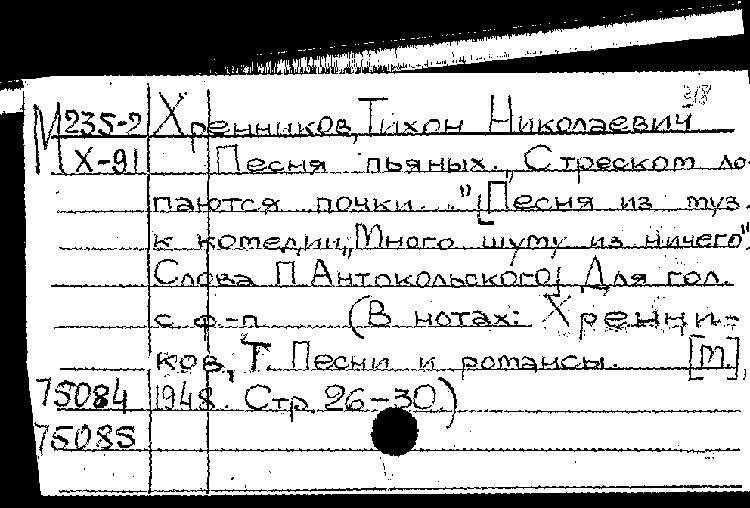 3/8
М 235-2 Хренников, Тихон Николаевич
Х-91 Песня пьяных. „С треском ло-
паются почки..." [Песня из муз.
к комедии „Много шуму из ничего"
Слова П. Антокольского] Для гол.
с ф-п (В нотах: Хренни-
ков, Т. Песни и романсы. [М.],
75084 1948. Стр. 26-30.)
75085